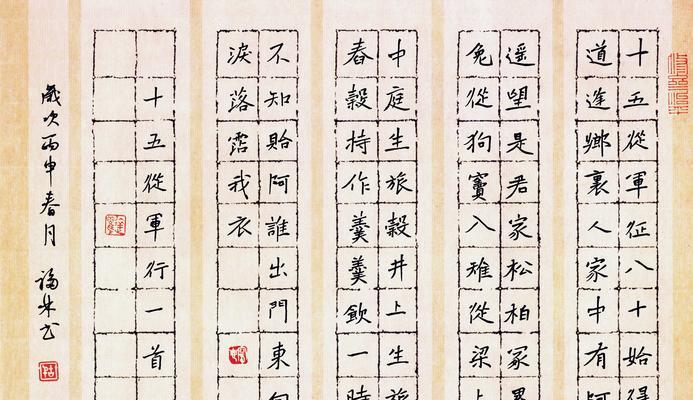 十五從軍征八十始得
道逢鄉裏人家中有阿
遥望是君家松柏冢累
兔從狗竇入雉從梁上
中庭生旅穀井上生旅
春穀持作羹羹飲一時
不知貽阿誰出門東向
淚落霑我衣
十五從軍行一首
歲次丙申春月
书